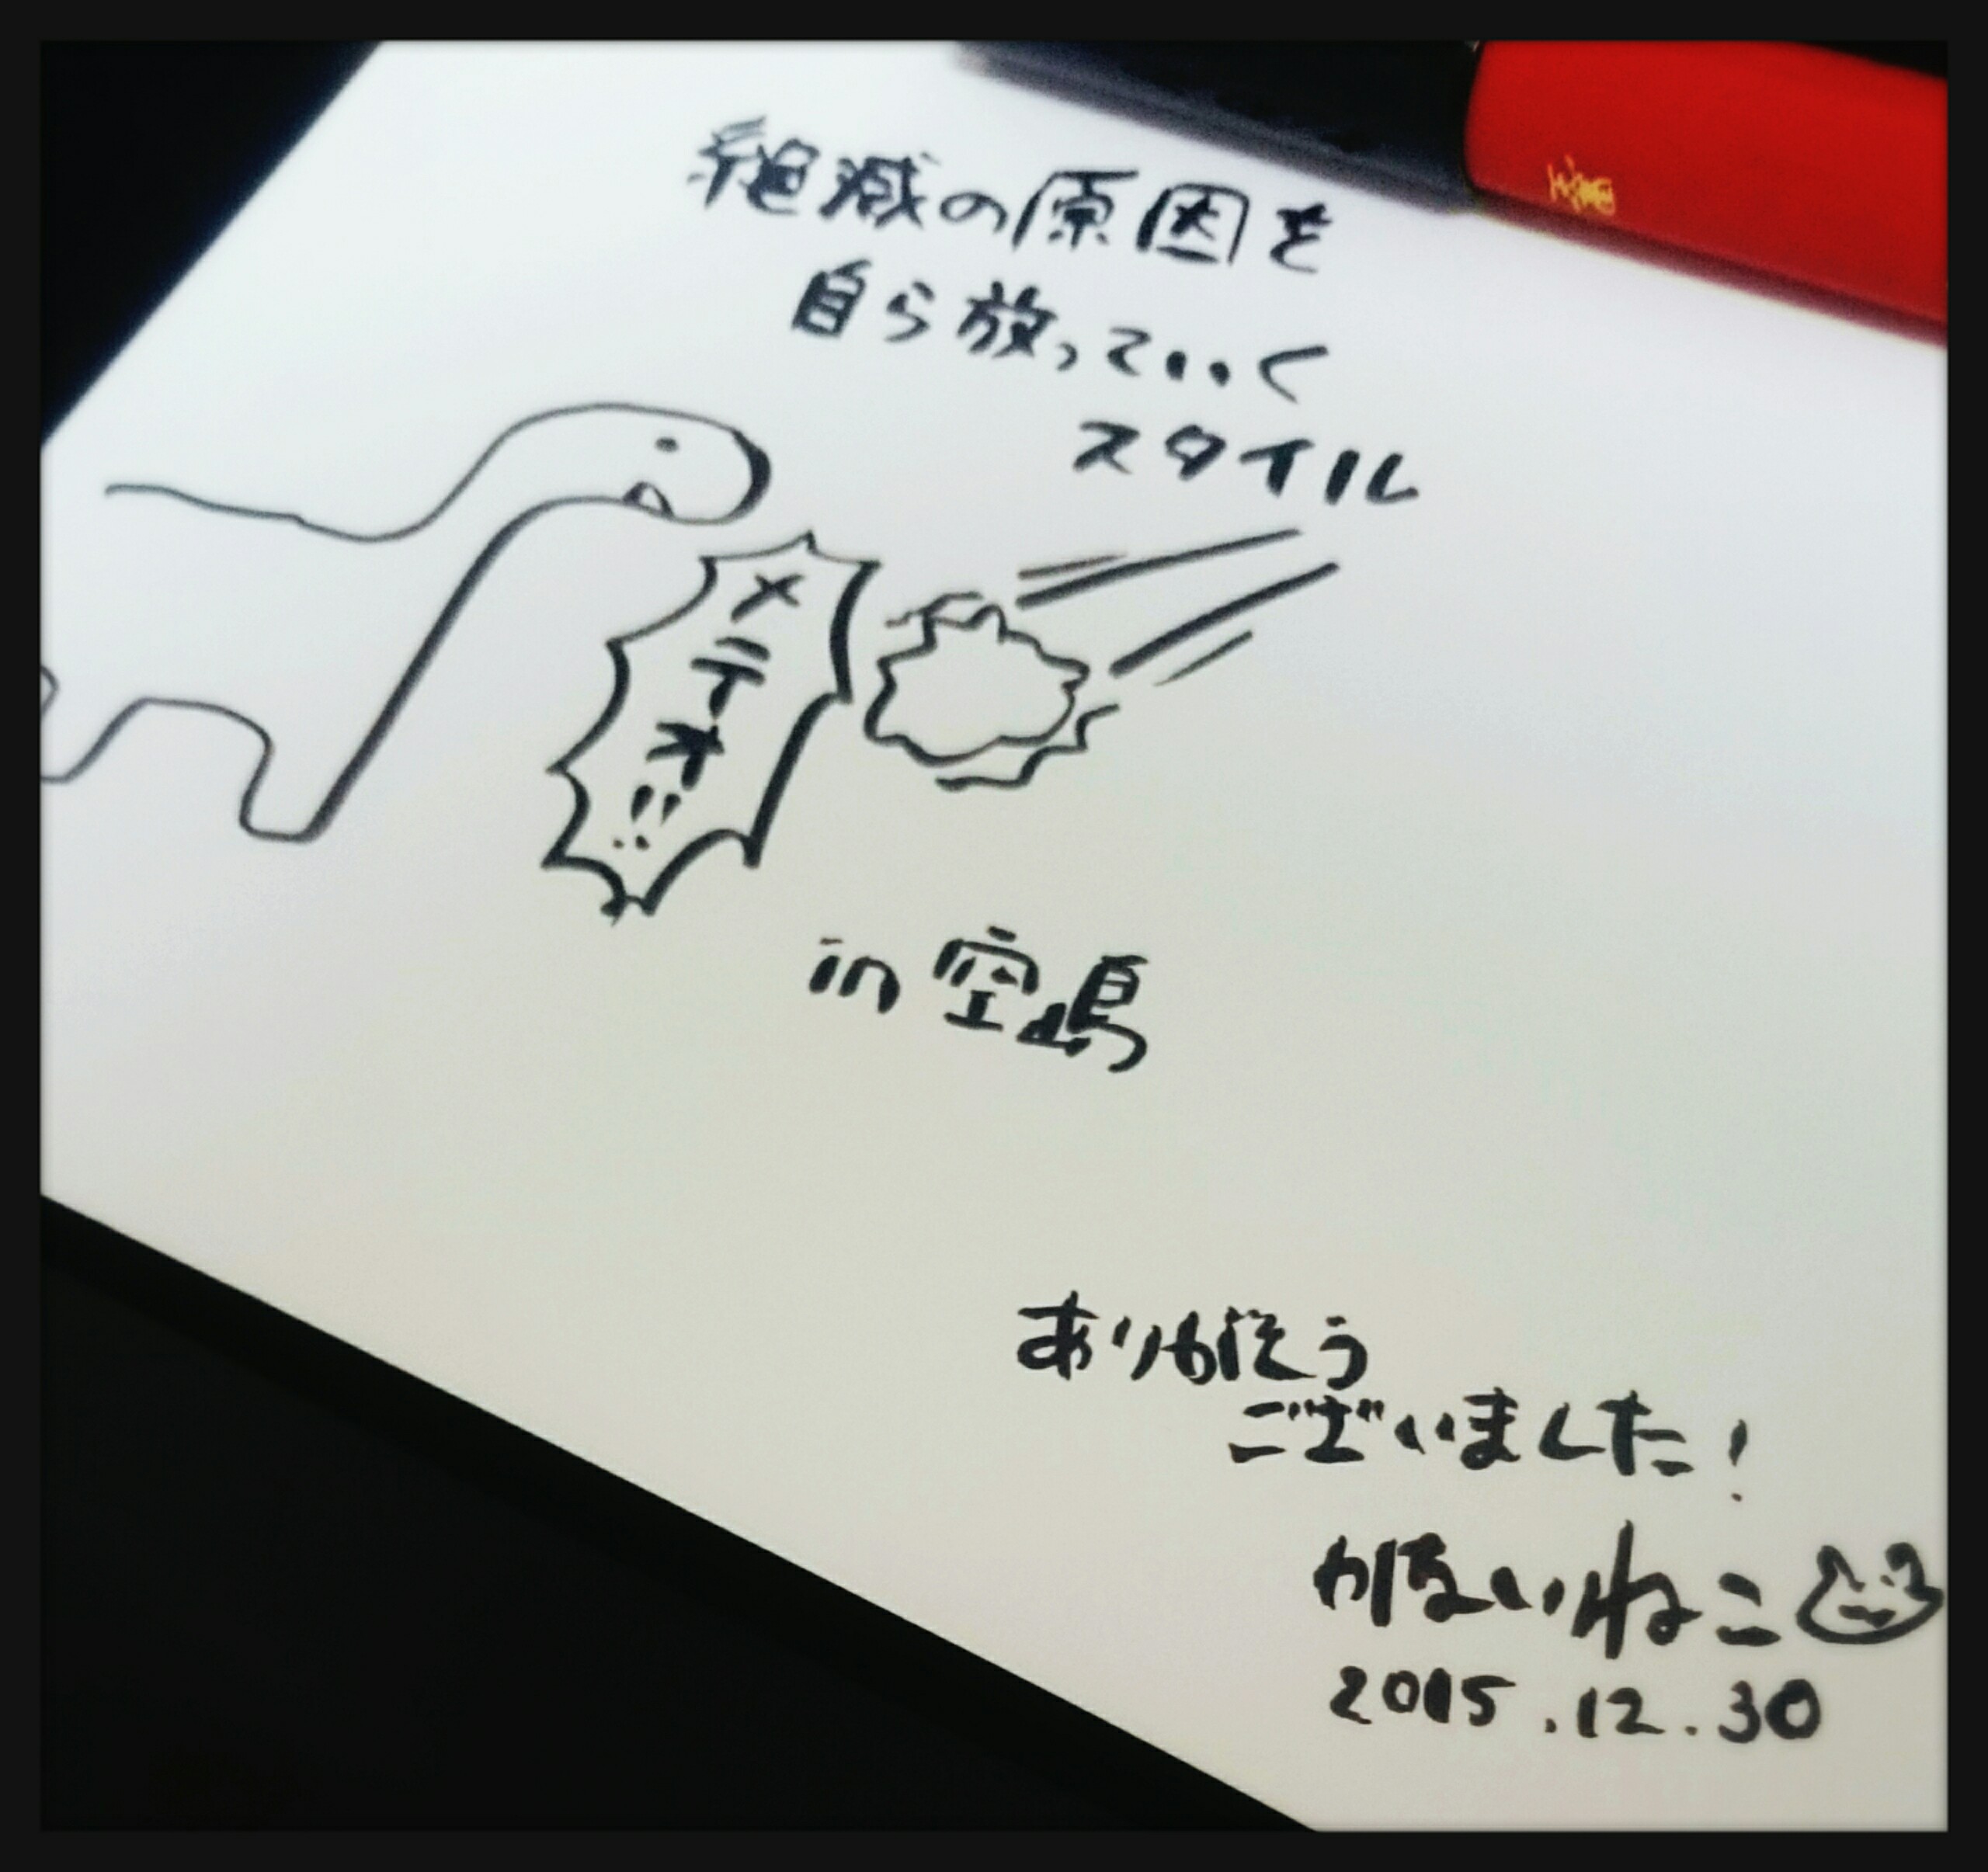 絶滅の原因を
自ら放っていく
スタイル
メテオ!!
in 空島
ありがとう
ございました!
かないねこ
2015.12.30